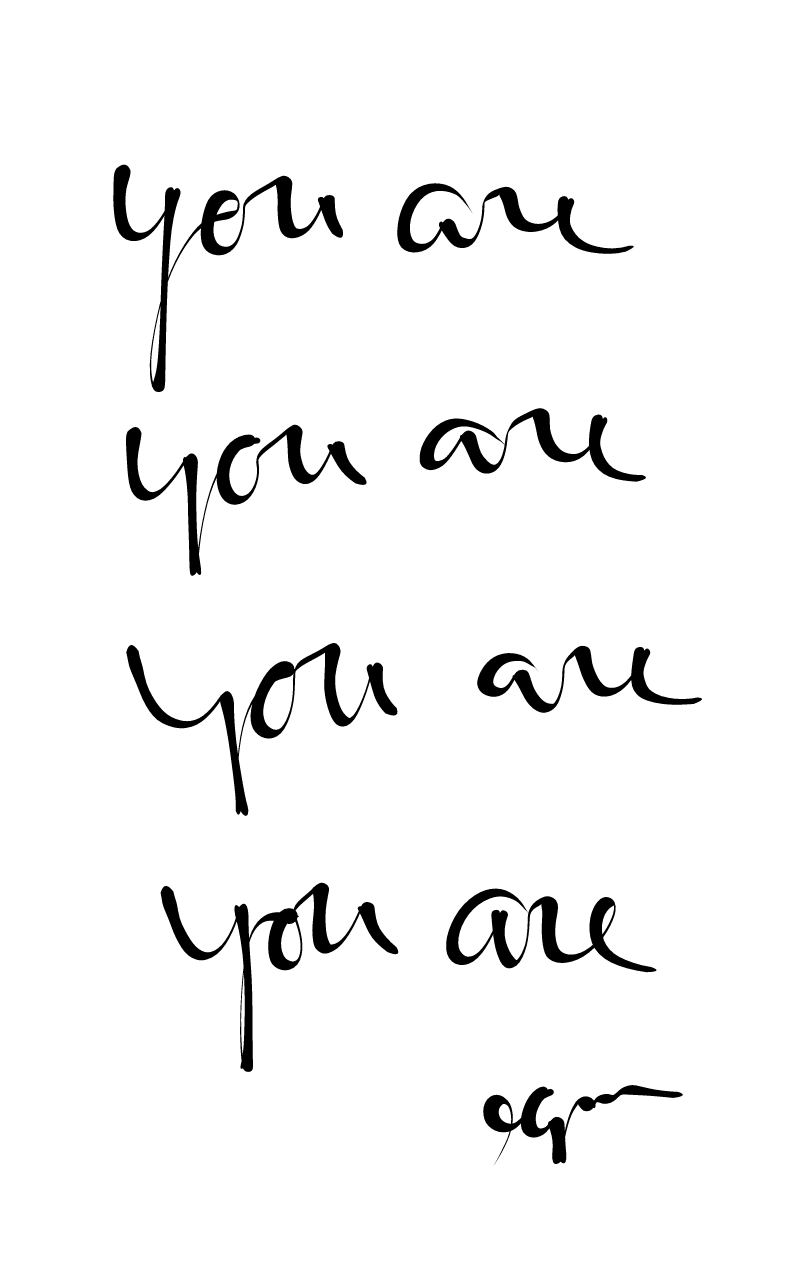 you are
you are
you are
you are